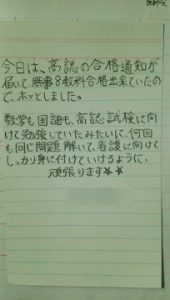 今日は、高認の合格通知が
届いて、無事8教科合格出来ていたの
で、ホッとしました。
数学も国語も、高認試験に向
けて勉強していたみたいに、何回
も同じ問題解いて、看護に向けて
しっかり身に付けていけるように、
頑張ります★★